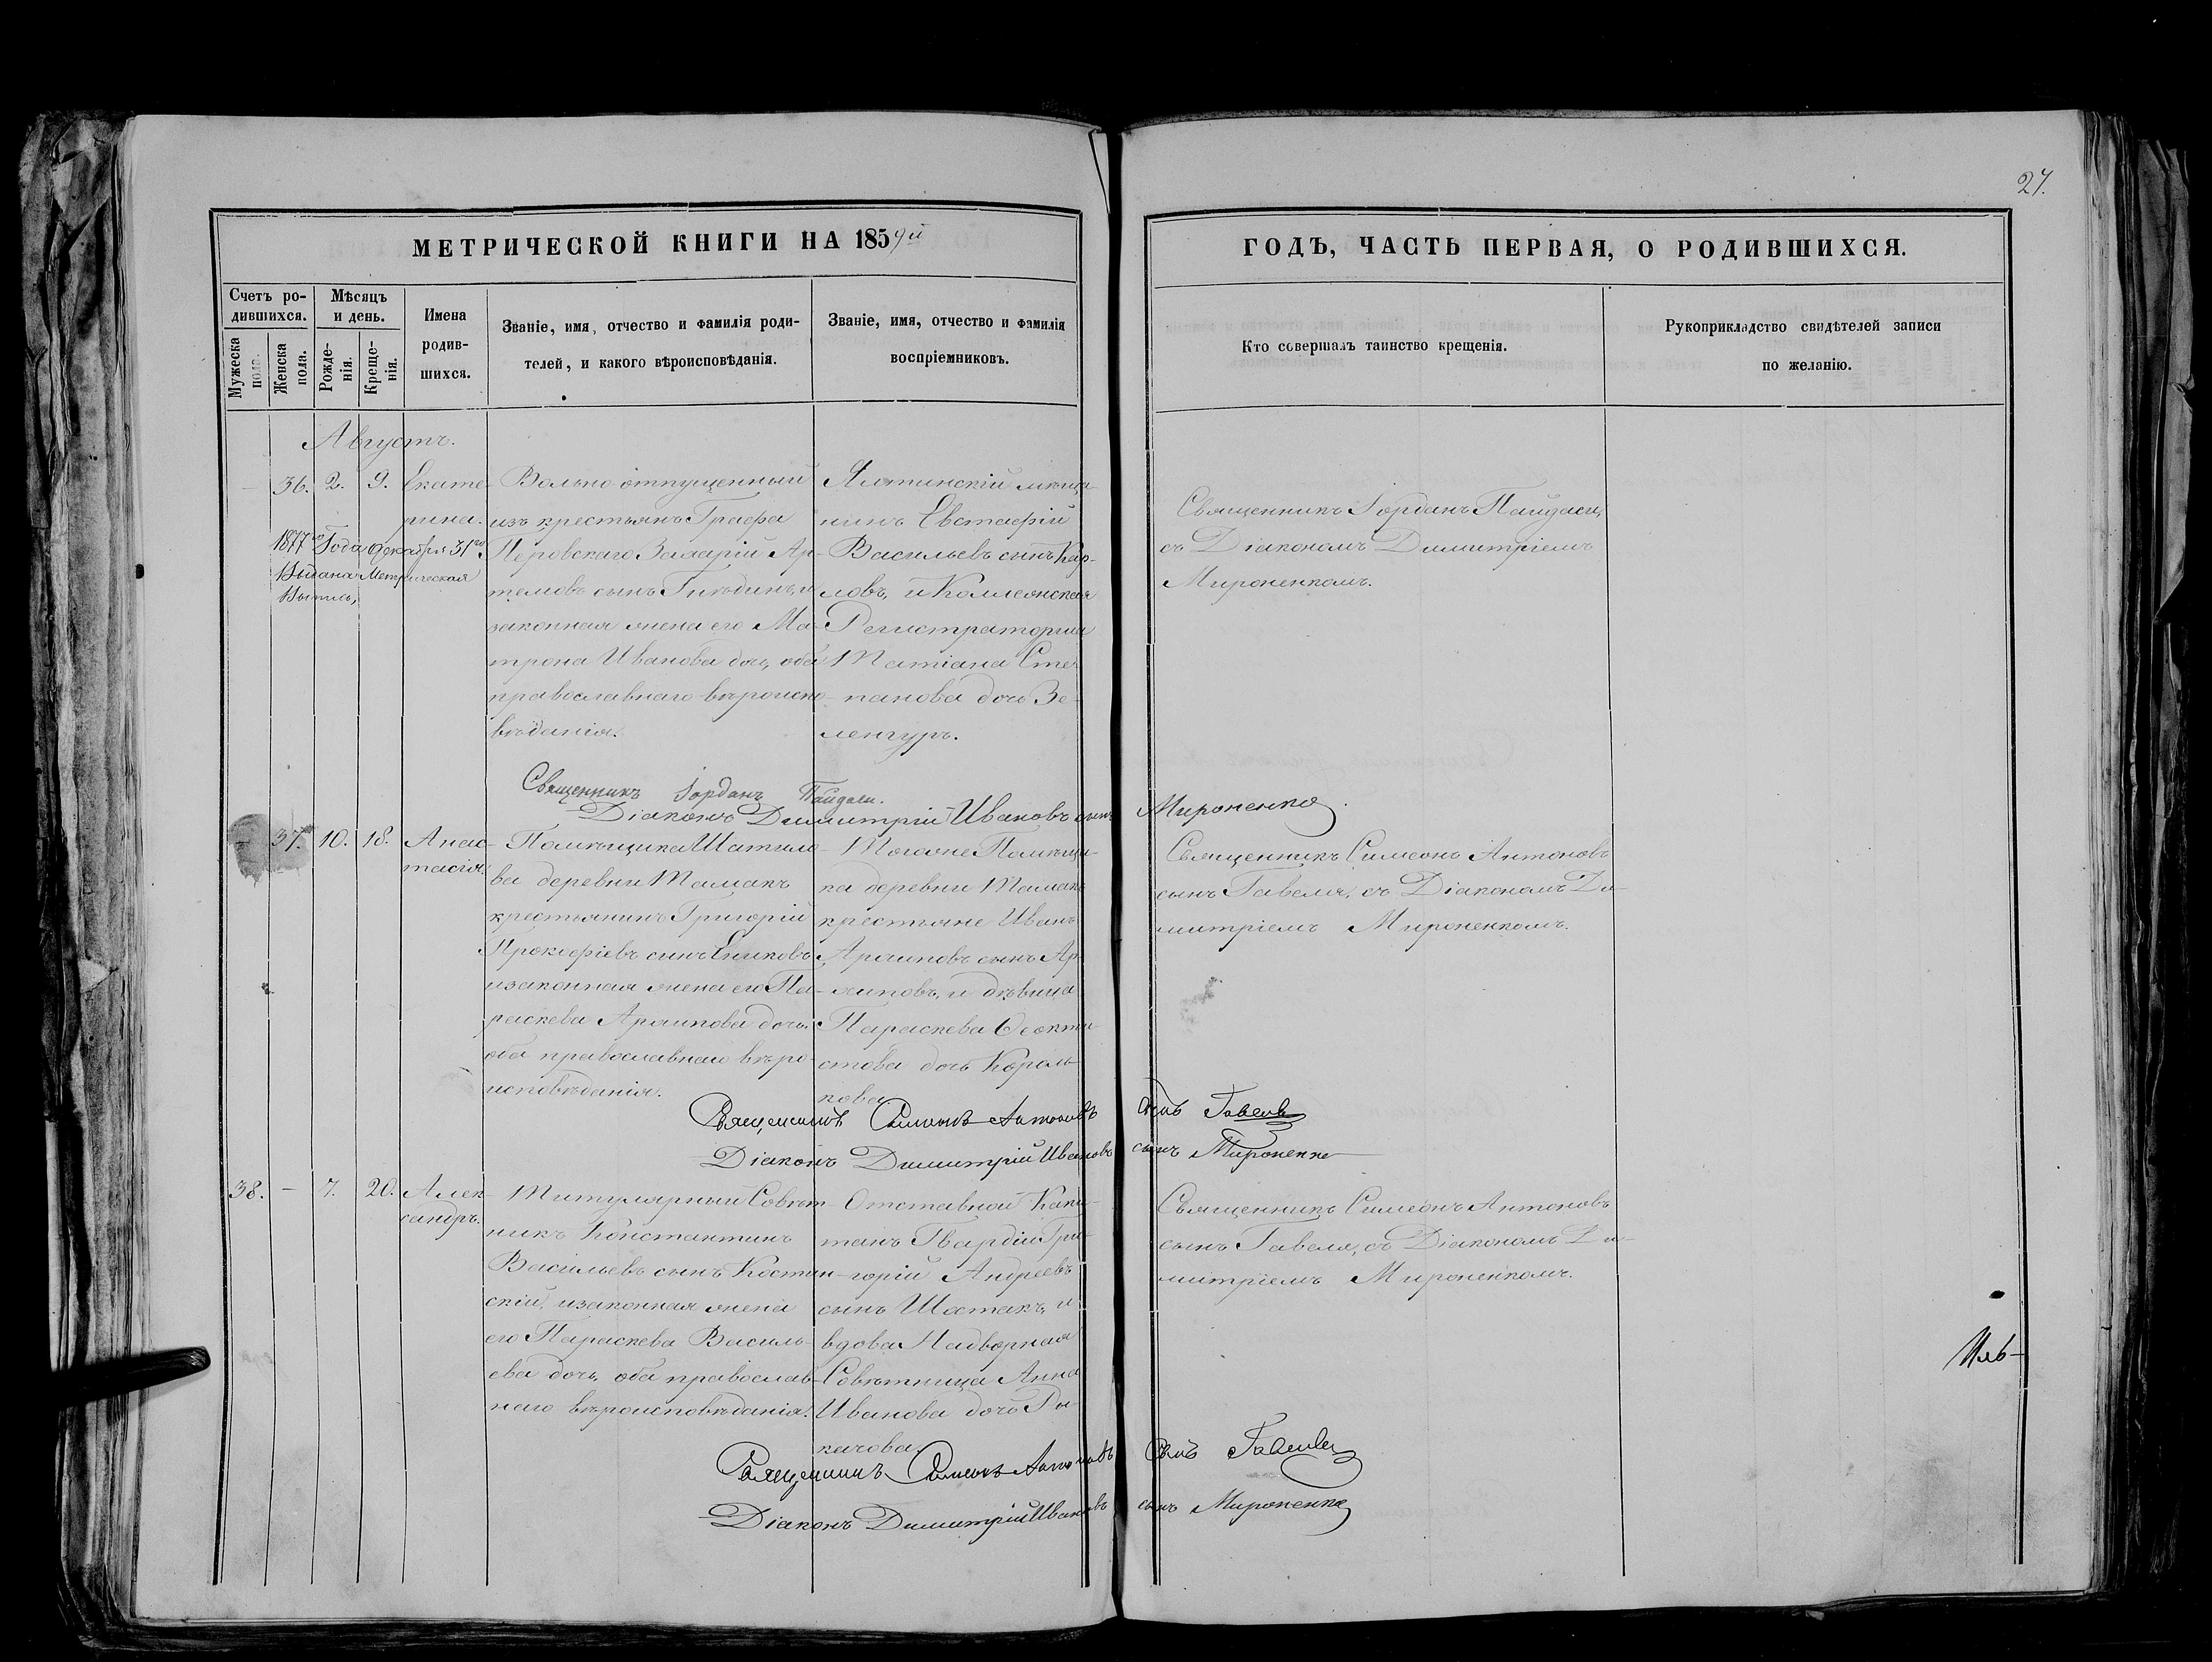 27.
МЕТРИЧЕСКОЙ КНИГИ НА 1859й
ГОДЪ, ЧАСТЬ ПЕРВАЯ, О РОДИВШИХСЯ.
Счетъ ро-
дившихся.
Мужеска
пола.
Женска
пола.
Мѣсяцъ
и день.
Рожде-
нія.
Креще-
нія.
Имена
родив-
шихся.
Званіе, имя, отчество и фамилія роди-
телей, и какого вѣроисповѣданія.
Званіе, имя, отчество и фамилія
воспріемниковъ.
Кто совершалъ таинство крещенія.
Рукоприкладство свидѣтелей записи
по желанію.
Августъ.
— 36. 2. 9. Екате-
рина.
1877го Года декабря 31го.
Выдана Метрическая
Выпись,
Вольно отпущенный
изъ крестьянъ Графа
Перовскаго Захарій Ар-
темовъ сынъ и
законная жена его Ма-
трона Иванова дочь, оба
православнаго вѣроиспо-
вѣданія.
Ялтинскій мѣща-
нинъ Евстафій
Васильевъ сынъ Кар-
ловъ, и Коллежская
Регистраторша
Татіана Сте-
панова дочь Зе-
ленгуръ.
Священникъ Іорданъ
съ Діакономъ Димитріемъ
Мироненкомъ.
Священникъ Іорданъ
Діаконъ Димитрій Ивановъ сынъ Мироненко.
37. 10. 18. Анас-
тасія.
Помѣщика Шатило-
ва деревни Тамакъ
крестьянинъ Григорій
Прокофіевъ сынъ
и законная жена его Па-
раскева Архипова дочь,
оба православнаго вѣро-
исповѣданія.
Тогоже Помѣщи-
ка деревни Тамакъ
крестьяне Иванъ
Архиповъ сынъ Ар-
хиповъ, и дѣвица
Параскева Ѳеокти-
стова дочь Король-
кова.
Священникъ Симеонъ Антоновъ
сынъ Гавеля, съ Діакономъ Ди-
митріемъ Мироненкомъ.
Священникъ Симеонъ Антоновъ сынъ Гавеля
Діаконъ Димитрій Ивановъ сынъ Мироненко
38. — 7. 20. Алек-
сандръ.
Титулярный Совѣт-
никъ Константинъ
Васильевъ сынъ Костин-
скій, и законная жена
его Параскева Василь-
ева дочь, оба православ-
наго вѣроисповѣданія.
Отставной Капи-
танъ Гвардіи Гри-
горій Андреевъ
сынъ Шостакъ, и
вдова Надворная
Совѣтница Анна
Иванова дочь Ры-
качова.
Священникъ Симеонъ Антоновъ
сынъ Гавеля, съ Діакономъ Ди-
митріемъ Мироненкомъ.
Священникъ Симеонъ Антоновъ сынъ Гавеля
Діаконъ Димитрій Ивановъ сынъ Мироненко